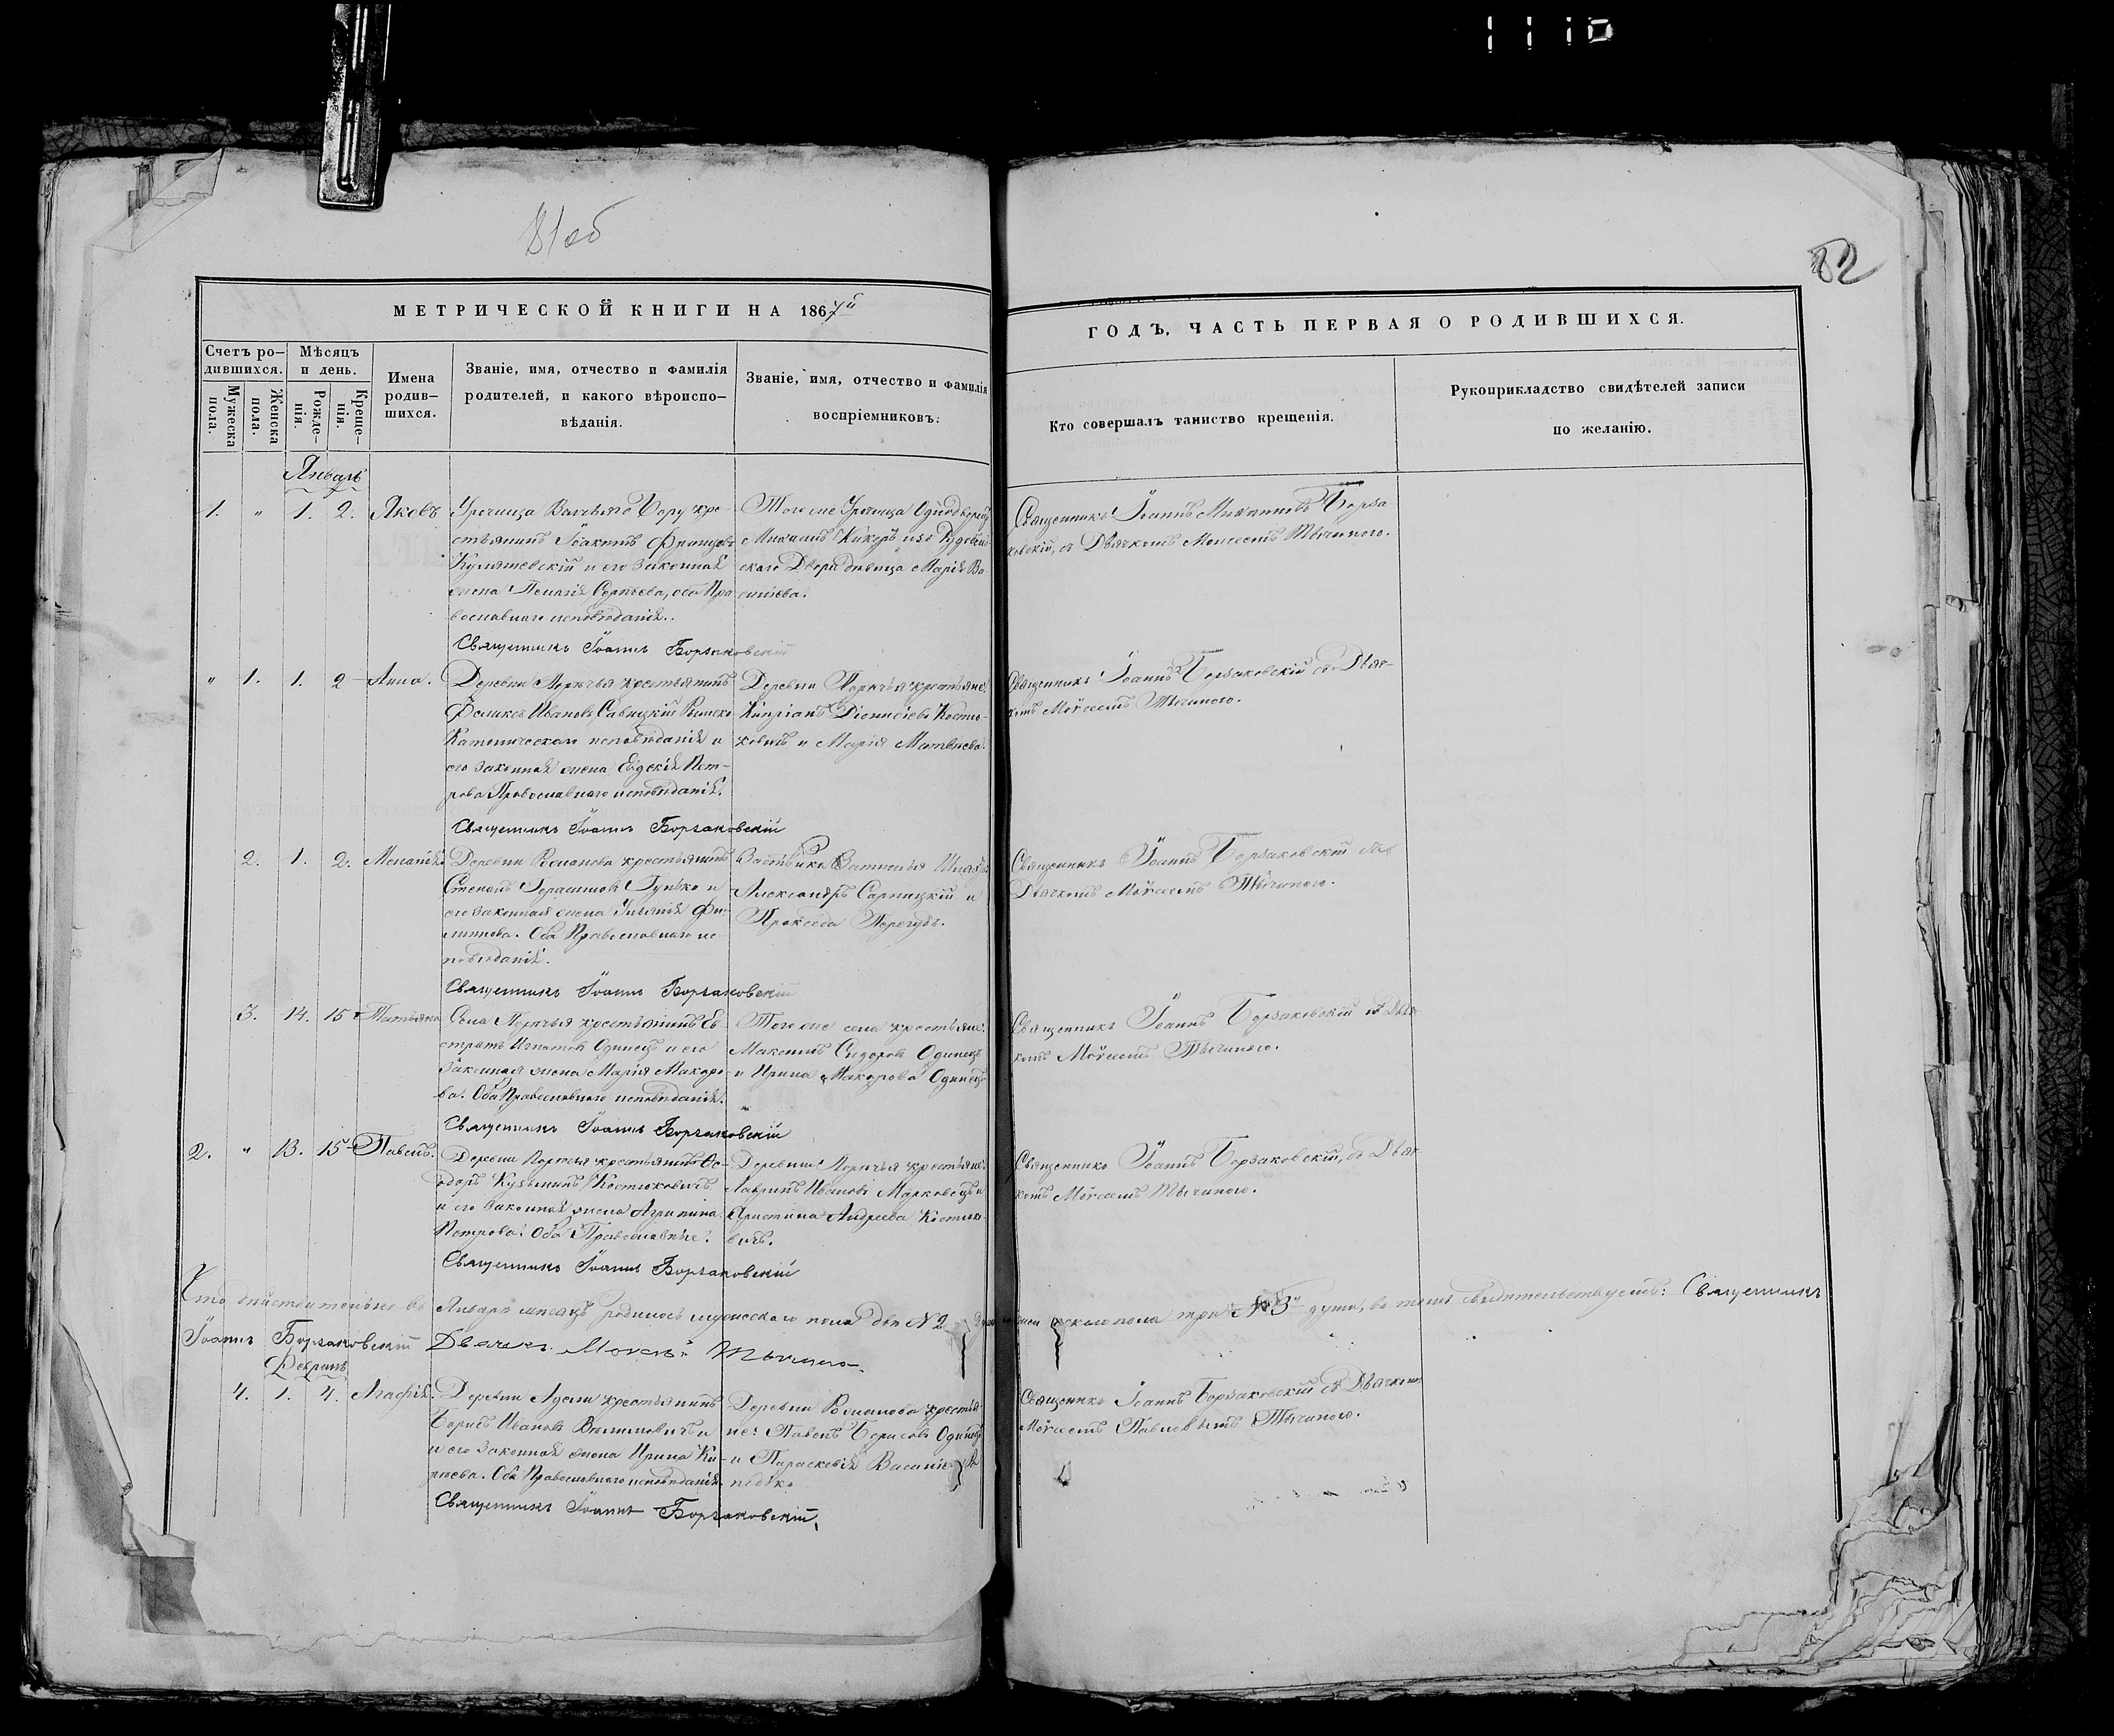 81об
82
МЕТРИЧЕСКОЙ КНИГИ НА 1867й
ГОДЪ, ЧАСТЬ ПЕРВАЯ О РОДИВШИХСЯ.
Счетъ ро-
дившихся.
Мужеска
пола.
Женска
пола.
Мѣсяцъ
и день.
Рожде-
нія.
Креще-
нія.
Имена
родив-
шихся.
Званіе, имя, отчество и фамилія
родителей, и какого вѣроиспо-
вѣданія.
Званіе, имя, отчество и фамилія
воспріемниковъ.
Кто совершалъ таинство крещенія.
Рукоприкладство свидѣтелей записи
по желанію.
Январь
1. " 1. 2. Яковъ
Урочища Бору кре-
стьянинъ Іоакимъ Францовъ
и его законная
жена Пелагія Сергѣева, оба Пра-
вославнаго исповѣданія.
Священникъ Іоаннъ Борзаковскій
Того же Урочища Однодворецъ
Михаилъ изъ
Двора дѣвица Марія Ва-
силіева.
Священникъ Іоаннъ Борза-
ковскій, съ Дьячкомъ Моисеемъ Тычиною.
" 1. 1. 2 Анна.
Деревни Порѣчья крестьянинъ
Феликсъ Ивановъ Савицкій Римско-
Католическаго исповѣданія и
его законная жена Евдокія Пет-
рова Православнаго исповѣданія.
Священникъ Іоаннъ Борзаковскій
Деревни Порѣчья крестьяне:
Кипріанъ Діонисіевъ Костю-
ковичъ и Марія Матвѣева.
Священникъ Іоаннъ Борзаковскій съ Дьяч-
комъ Моѵсеемъ Тычиною.
2. 1. 2. Меланія
Деревни Романова крестьянинъ
Степанъ Герасимовъ Гунько и
его законная жена Ульянія Фи-
липпова. Оба Православнаго ис-
повѣданія.
Священникъ Іоаннъ Борзаковскій
Александръ Сарницкій и
Пракседа
Священникъ Іоаннъ Борзаковскій съ
Дьячкомъ Моѵсеемъ Тычиною.
3. 14. 15 Татьяна
Села Порѣчья крестьянинъ Ев-
стратъ Игнатовъ Одинецъ и его
Законная жена Марія Макаро-
ва. Оба Православнаго исповѣданія.
Священникъ Іоаннъ Борзаковскій
Того же села крестьяне:
Максимъ Сидоровъ Одинецъ
и Ирина Макарова Одинецъ
Священникъ Іоаннъ Борзаковскій съ Дьяч-
комъ Моѵсеемъ Тычиною.
2. " 13. 15 Павелъ.
Деревни Порѣчья крестьянинъ Ѳе-
одоръ Кузьминъ Костюковичъ
и его законная жена Агрипина
Петрова. Оба Православные.
Священникъ Іоаннъ Борзаковскій
Деревни Порѣчья крестьяне:
Лавринъ Ивановъ Марковецъ и
Христина Андреева Костюко-
вичъ.
Священникъ Іоаннъ Борзаковскій, съ Дьяч-
комъ Моѵсеемъ Тычиною.
Что дѣйствительно въ Январѣ мѣсяцѣ родилось мужескаго пола двѣ № 2 женскаго пола три № 3 души, въ томъ свидѣтельствуемъ: Священникъ
Іоаннъ Борзаковскій Дьячекъ Моѵсей Тычино.
Февраль
4. 1. 4. Агафія.
Деревни крестьянинъ
Борисъ Ивановъ и
его законная жена Ирина Ки-
рѣева. Оба Православнаго исповѣданія.
Священникъ Іоаннъ Борзаковскій.
Деревни Романова крестья-
не: Павелъ Борисовъ Одинецъ
и Параскевія
Священникъ Іоаннъ Борзаковскій съ Дьячкомъ
Моѵсеемъ Павловымъ Тычиною.